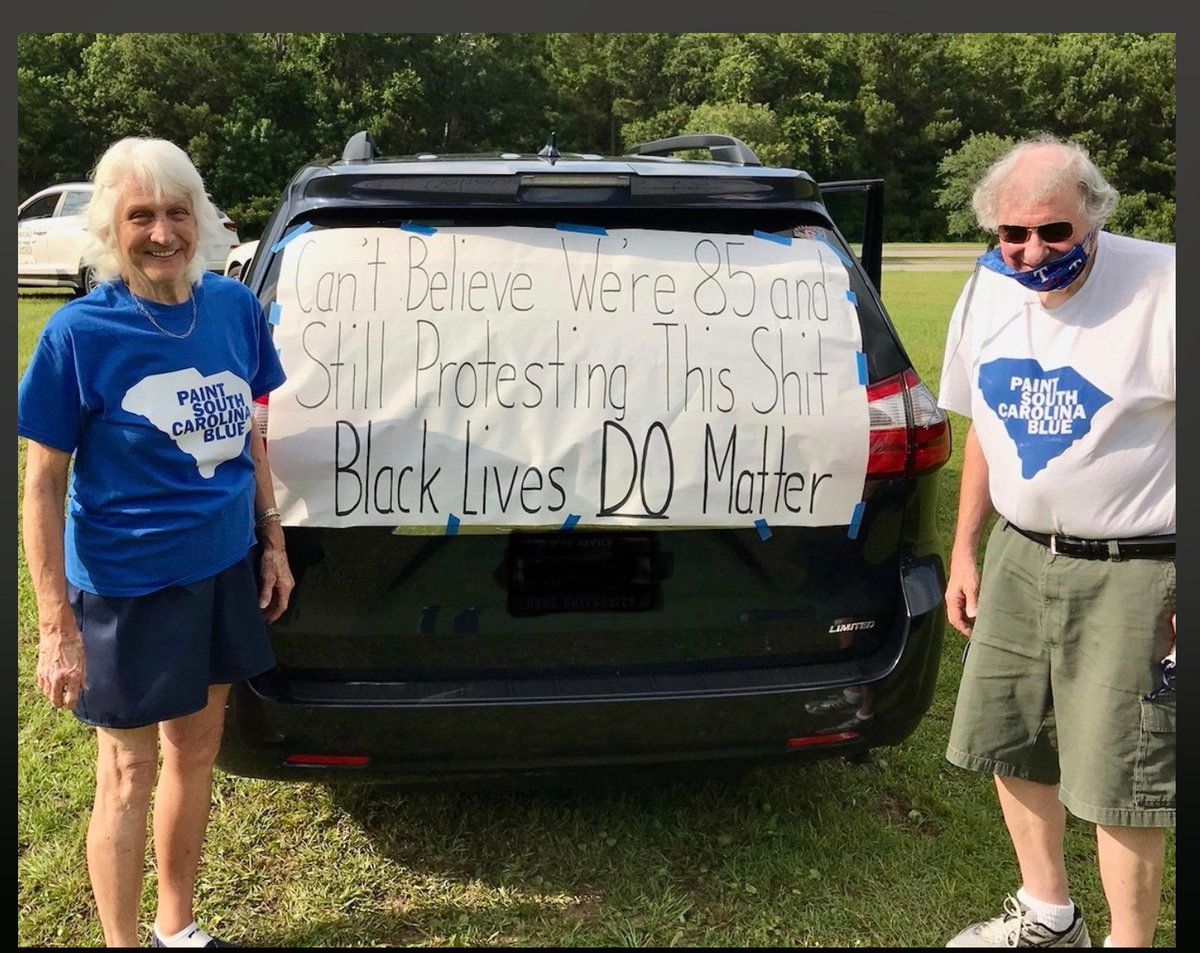 Can't Believe We're 85 and
Still Protesting This Shit
Black Lives DO Matter
PAINT
SOUTH
CAROLINA
BLUE
PAINT
SOUTH
CAROLINA
BLUE
T
BLUE DEVILS
DUKE UNIVERSITY
LIMITED